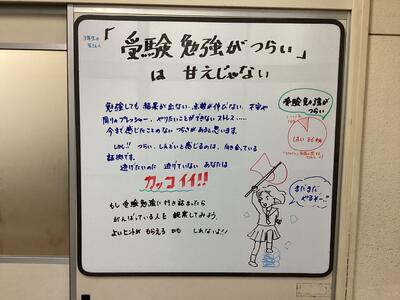 3年生の
皆さんへ
「受験勉強がつらい」
は 甘えじゃない
勉強しても 結果が出ない、点数が伸びない、不安や
周りのプレッシャー、やりたいことができないストレス……
今まで感じたことのない つらさがあると思います。
しかし!! つらい、しんどいと感じるのは、向き合っている
証拠です。
逃げたいのに 逃げていない あなたは
カッコイイ!!
もし受験勉強に行き詰まったら
がんばっている人を 観察してみよう。
よいヒントが もらえる かも しれないよ!♪
受験勉強が
つらい
はい
まだまだ
やるぞー!